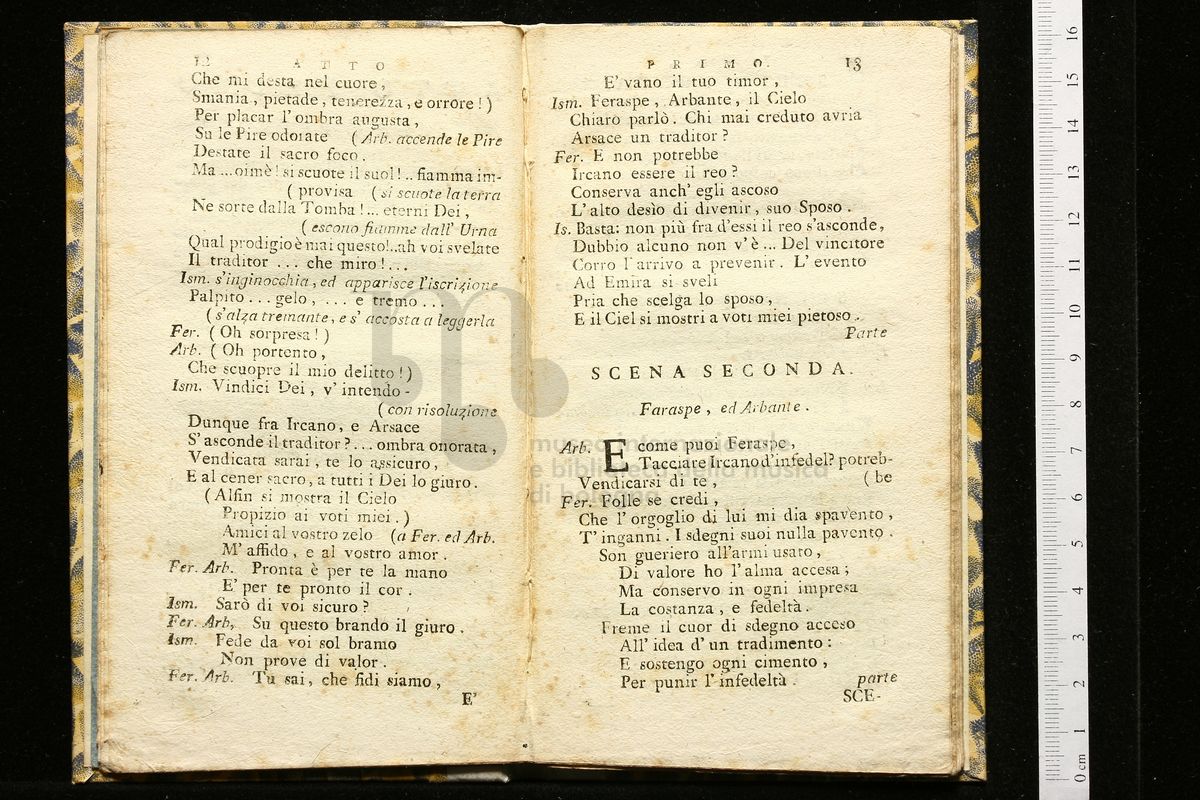 12 ATTO
Che mi desta nel cuore,
Smania, pietade, tenerezza, e orrore!)
Per placar l'ombra augusta,
Su le Pire odorate (Arb. accende le Pire
Destate il sacro foco.
Ma ... oimè! si scuote il suol!.. fiamma im-
(provisa (si scuote la terra
Ne sorte dalla Tomba!... eterni Dei,
(escono fiamme dall' Urna
Qual prodigio è mai questo!..ah voi svelate
Il traditor ... che miro!...
Ism. s'inginocchia, ed apparisce l'iscrizione
Palpito ... gelo, ... e tremo ...
(s'alza tremante, e s' accosta a leggerla
Fer. (Oh sorpresa!)
Arb. (Oh portento,
Che scuopre il mio delitto!)
Ism. Vindici Dei, v' intendo -
(con risoluzione
Dunque fra Ircano, e Arsace
S'asconde il traditor?... ombra onorata,
Vendicata sarai, te lo assicuro,
E al cener sacro, a tutti i Dei lo giuro.
(Alfin si mostra il Cielo
Propizio ai voti miei.)
Amici al vostro zelo (a Fer. ed Arb.
M' affido, e al vostro amor.
Fer. Arb. Pronta è per te la mano
E' per te pronto il cor.
Ism. Sarò di voi sicuro?
Fer. Arb. Su questo brando il giuro.
Ism. Fede da voi sol bramo
Non prove di valor.
Fer. Arb. Tu sai, che fidi siamo,
E'
PRIMO. 13
E' vano il tuo timor,
Ism. Feraspe, Arbante, il Cielo
Chiaro parlò. Chi mai creduto avria
Arsace un traditor?
Fer. E non potrebbe
Ircano essere il reo?
Conserva anch' egli ascoso
L'alto desìo di divenir, suo Sposo.
Is. Basta: non più fra d'essi il reo s'asconde,
Dubbio alcuno non v'è ... Del vincitore
Corro l'arrivo a prevenir. L' evento
Ad Emira si sveli
Pria che scelga lo sposo,
E il Ciel si mostri a voti miei pietoso.
Parte
SCENA SECONDA.
Faraspe, ed Arbante.
Arb. E come puoi Feraspe,
Tacciare Ircano d'infedel? potreb-
Vendicarsi di te, (be
Fer. Folle se credi,
Che l'orgoglio di lui mi dia spavento,
T' inganni. I sdegni suoi nulla pavento.
Son gueriero all'armi usato,
Di valore ho l'alma accesa;
Ma conservo in ogni impresa
La costanza, e fedeltà.
Freme il cuor di sdegno acceso
All' idea d' un tradimento:
E sostengo ogni cimento,
Per punir l'infedeltà. parte
SCE-
museo internazionale
e biblioteca della musica
di bologna
16
15
14
13
12
11
10
9
8
7
6
5
4
3
2
1
0 cm